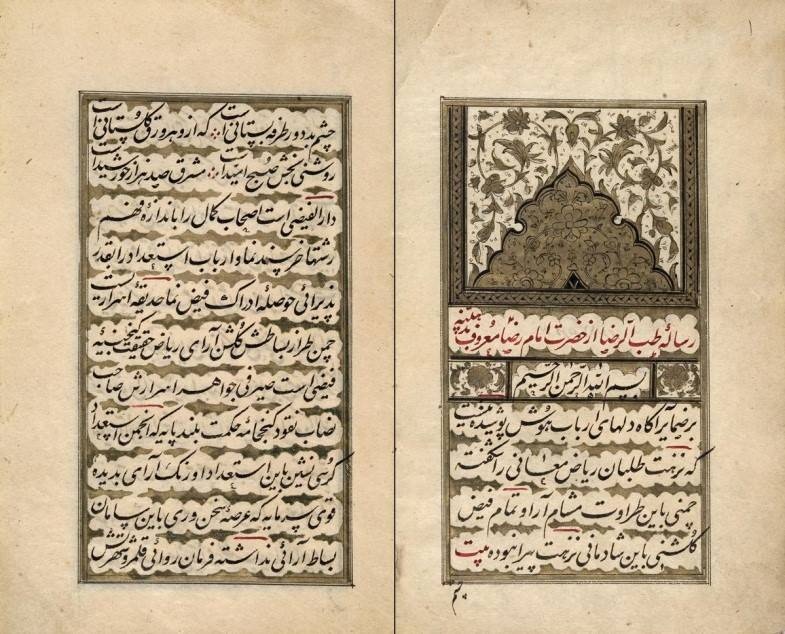 رسالهٔ طب الرضا از حضرت امام رضا معروف بذهبیه
بسم الله الرحمن الرحیم
بر ضمایر آگاه دلهای ارباب هوش پوشیده نیست
که نزهت طلبان ریاض معانی را نگفته
چمنی باین طراوت مشام آرا و تمام فیض
گلشنی باین شادمانی نزهت پیرا نبوده بیت
چشم بد دور طرفه بستانی است که ازو هر ورق گلستانی است
روشنی بخش صبح امید است مشرق صد هزار خورشید است
دار الفیضی است اصحاب کمال را باندازهٔ فهم
رسا خرسند نما و ارباب استعداد را بقدر
پذیرائی حوصلهٔ ادراک فیض نما حدیقهٔ اسراریست
چمن طراز بساطش گلشن آرای ریاض حقیقت گنجینهٔ
فیضی است صیرفی جواهر اسرارش صاحب
نصاب نقود گنجخانهٔ حکمت بلند پایه که انجمن استعداد
کرسی نشین باین استعداد اورنگ آرای ندیده
قوی سرمایه که عرصهٔ سخن وری باین سامان
بساط آرائی نداشته فرمان روائی قلمرو